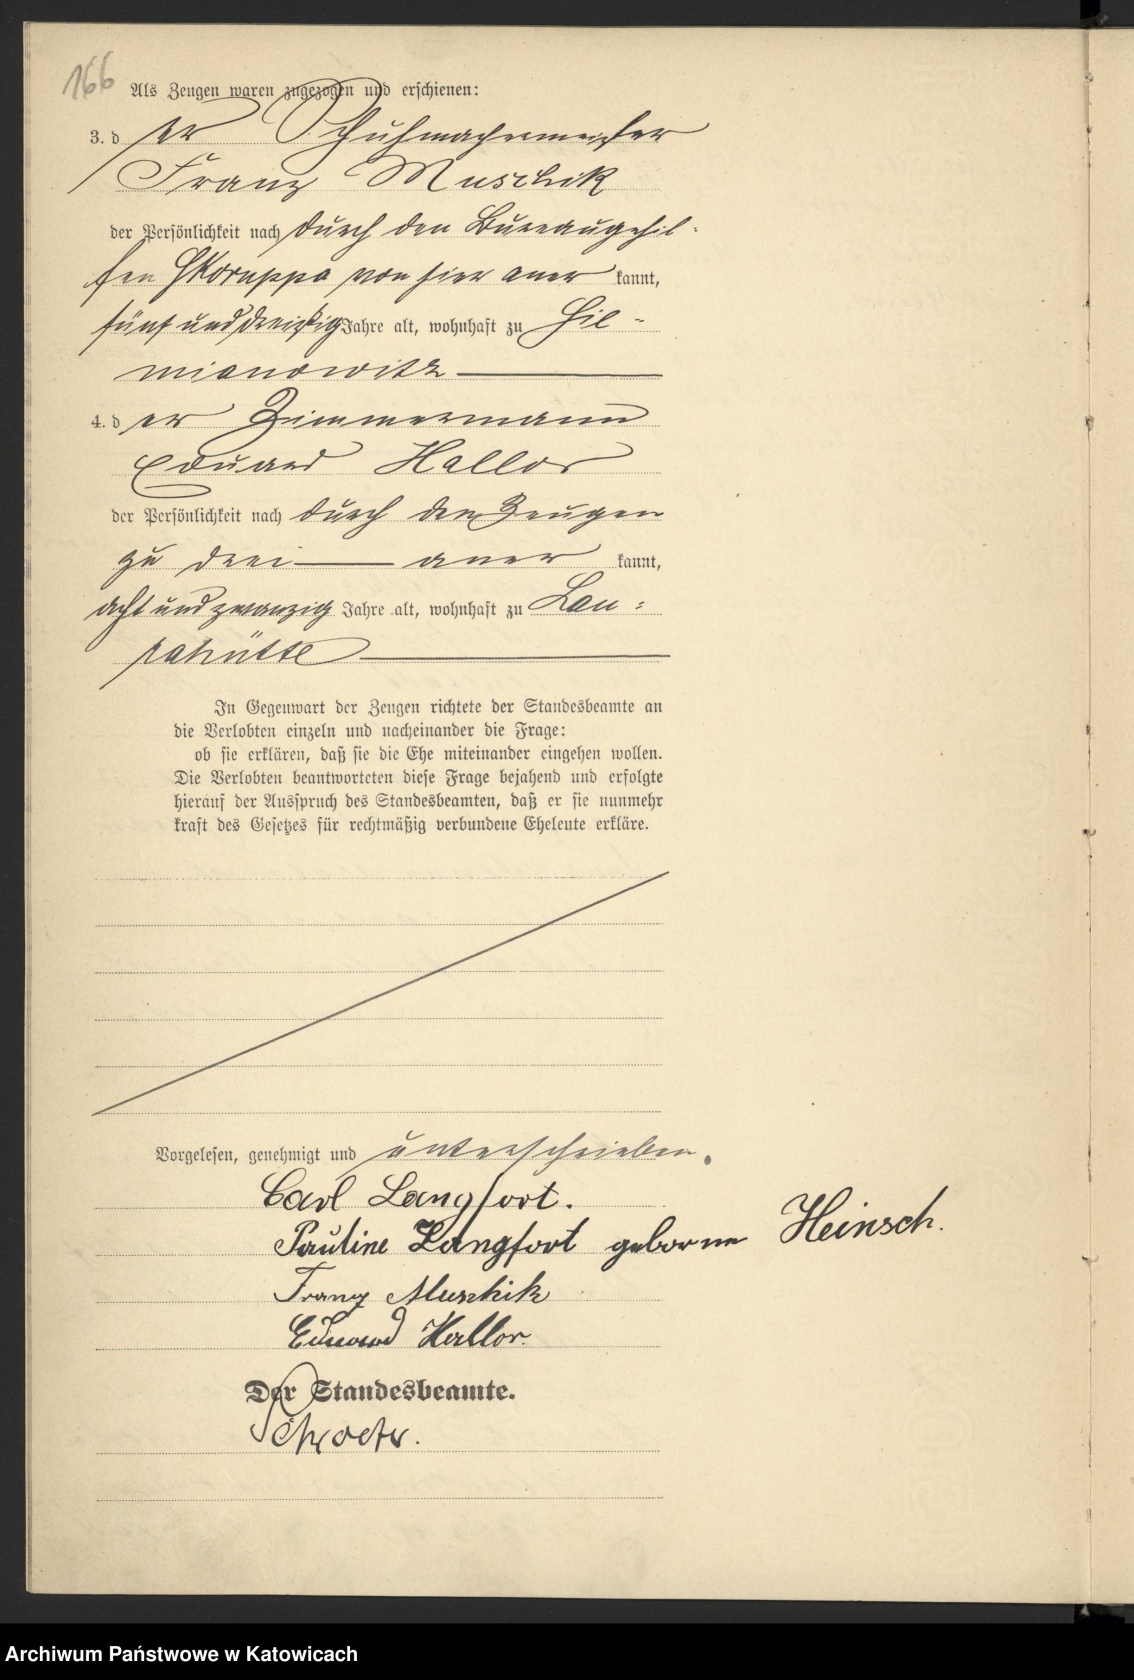 166
Als Zeugen waren zugezogen und erschienen:
3. der Schuhmachermeister
Franz Muschik
der Persönlichkeit nach durch den Bureaugehil-
fen Skoruppa von hier aner kannt,
fünf und dreißig Jahre alt, wohnhaft zu Sie-
mianowitz
4. der Zimmermann
Eduard Hallor
der Persönlichkeit nach durch den Zeugen
zu drei aner kannt,
acht und zwanzig Jahre alt, wohnhaft zu Lau-
rahütte
In Gegenwart der Zeugen richtete der Standesbeamte an
die Verlobten einzeln und nacheinander die Frage:
ob sie erklären, daß sie die Ehe miteinander eingehen wollen.
Die Verlobten beantworteten diese Frage bejahend und erfolgte
hierauf der Ausspruch des Standesbeamten, daß er sie nunmehr
kraft des Gesetzes für rechtmäßig verbundene Eheleute erkläre.
Vorgelesen, genehmigt und unterschrieben.
Carl Langfort.
Pauline Langfort geborne Heinsch.
Franz Muschik
Eduard Hallor.
Der Standesbeamte.
Schroeter.
Archiwum Państwowe w Katowicach